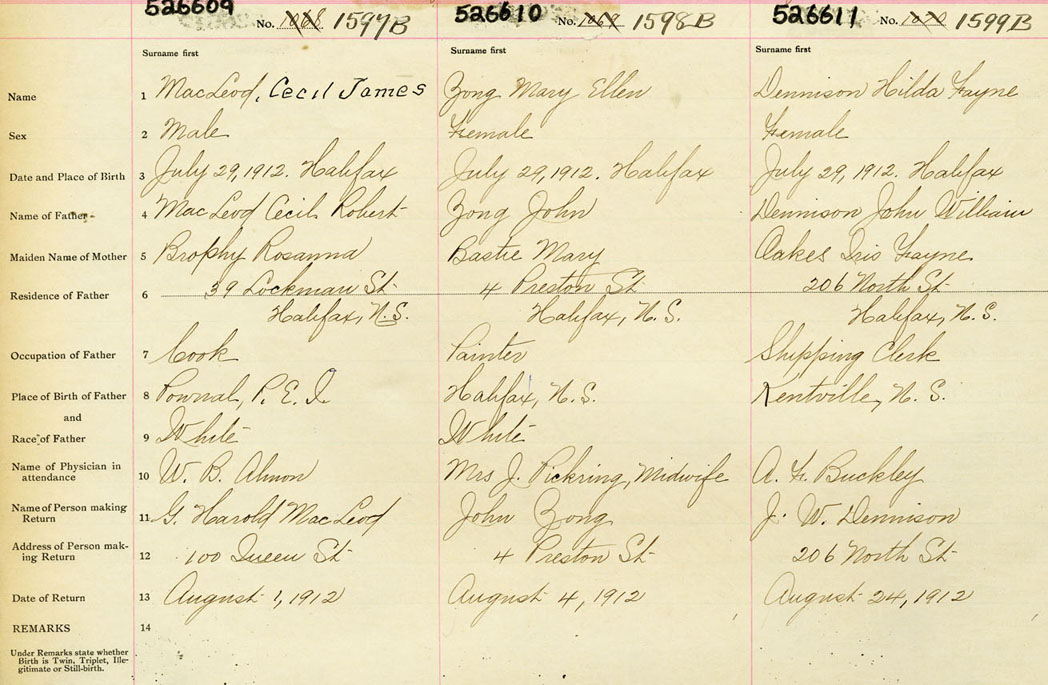 526609 No. 1068 1597B 526610 No. 1069 1598B 526611 No. 1070 1599B
Surname first Surname first Surname first
Name 1 MacLeod, Cecil James Zong Mary Ellen Dennison Hilda Fayne
Sex 2 Male Female Female
Date and Place of Birth 3 July 29, 1912. Halifax July 29, 1912. Halifax July 29, 1912. Halifax
Name of Father 4 MacLeod Cecil Robert Zong John Dennison John William
Maiden Name of Mother 5 Brophy Rosanna Bastie Mary Oakes Iris Fayne
Residence of Father 6 39 Lockman St 4 Preston St 206 North St
Halifax, N.S. Halifax, N.S. Halifax, N.S.
Occupation of Father 7 Cook Painter Shipping Clerk
Place of Birth of Father 8 Pownal, P.E.I. Halifax, N.S. Kentville, N.S.
and
Race of Father 9 White White
Name of Physician in
attendance 10 W. B. Almon Mrs J. Pickring, Midwife A. F. Buckley
Name of Person making
Return 11 G. Harold MacLeod John Zong J. W. Dennison
Address of Person mak-
ing Return 12 100 Queen St 4 Preston St 206 North St
Date of Return 13 August 1, 1912 August 4, 1912 August 24, 1912
REMARKS 14
Under Remarks state whether
Birth is Twin, Triplet, Ille-
gitimate or Still-birth.